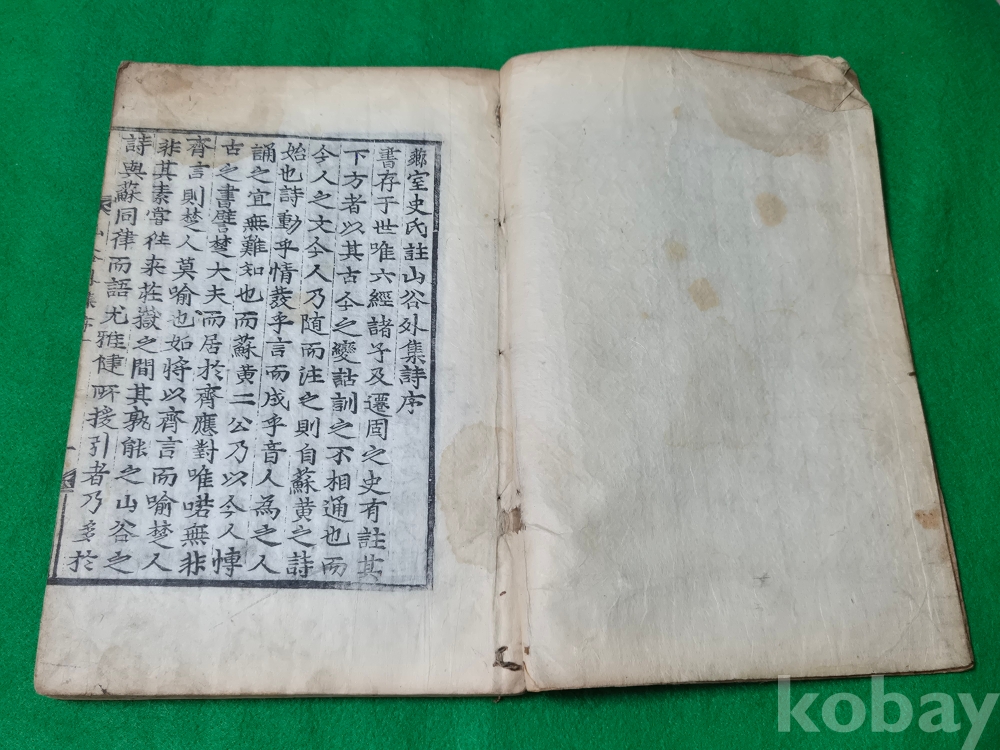 薌室史氏註山谷外集詩序
書存于世唯六經諸子及遷固之史有註其
下方者以其古今之變詁訓之不相通也而
今人之文今人乃随而注之則自蘇黄之詩
始也詩動乎情發乎言而成乎音人為之人
誦之宜無難知也而蘇黄二公乃以今人慱
古之書譬楚大夫而居於齊應對唯喏無非
齊言則楚人莫喻也如將以齊言而喻楚人
非其素嘗往来莊嶽之間其孰能之山谷之
詩與蘇同律而語尤雅健所援引者乃多於
kobay